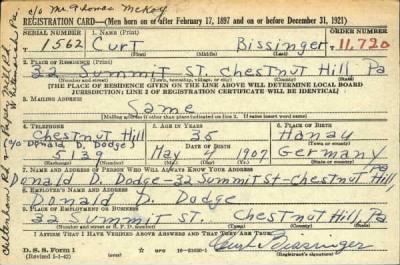 c/o Mr. Thomas McKoy
REGISTRATION CARD—(Men born on or after February 17, 1897 and on or before December 31, 1921)
SERIAL NUMBER 1. NAME (Print) ORDER NUMBER
1562 Curt Bissinger 11,720
(First) (Middle) (Last)
2. PLACE OF RESIDENCE (Print)
22 Summit St. Chestnut Hill Pa
(Number and street) (Town, township, village, or city) (County) (State)
[THE PLACE OF RESIDENCE GIVEN ON THE LINE ABOVE WILL DETERMINE LOCAL BOARD
JURISDICTION; LINE 2 OF REGISTRATION CERTIFICATE WILL BE IDENTICAL]
3. MAILING ADDRESS
Same
[Mailing address if other than place indicated on line 2. If same insert word same]
4. TELEPHONE 5. AGE IN YEARS 6. PLACE OF BIRTH
Chestnut Hill 35 Hanau
(c/o Donald D. Dodge) DATE OF BIRTH (Town or county)
139 May 1907 Germany
(Exchange) (Number) (Mo.) (Day) (Yr.) (State or country)
7. NAME AND ADDRESS OF PERSON WHO WILL ALWAYS KNOW YOUR ADDRESS
Donald D. Dodge-22 Summit St-Chestnut Hill Pa
8. EMPLOYER'S NAME AND ADDRESS
Donald D. Dodge
9. PLACE OF EMPLOYMENT OR BUSINESS
22 Summit St. Chestnut Hill, Pa
(Number and street or R. F. D. number) (Town) (County) (State)
I AFFIRM THAT I HAVE VERIFIED ABOVE ANSWERS AND THAT THEY ARE TRUE.
D. S. S. Form 1
(Revised 1-1-42) (over)
Curt Bissinger
(Registrant's signature)
Cheltenham Rd